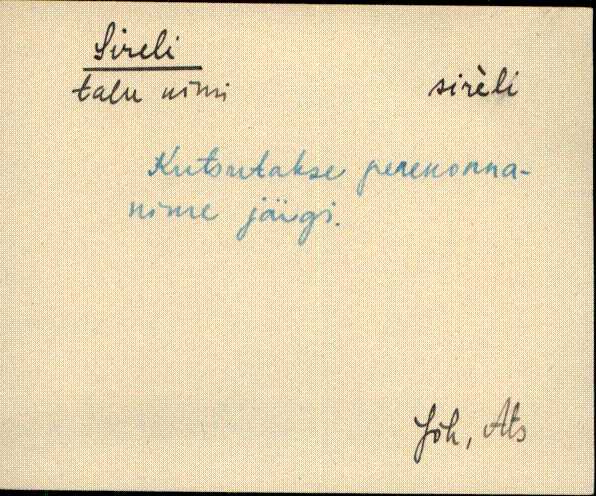 Sireli
talu nimi
sirèli
Kutsutakse perekonna-
nime järgi.
Jõh, Ats